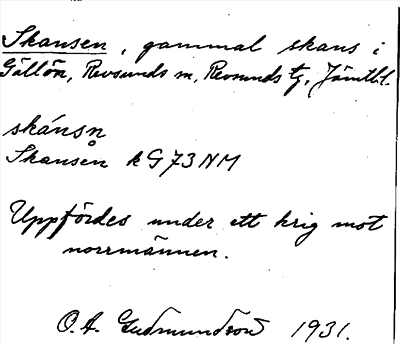 Skansen, gammal skans i
Gällön, Revsunds sn, Revsunds tg, Jämtl. l.
skánsn̥
Skansen k G73NM
Uppfördes under ett krig mot
norrmännen.
O. A. Gudmundson 1931.